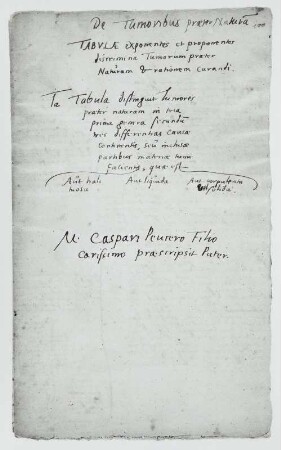 De Tumoribus præter Natura
TABVLÆ exponentes et proponentes
discrimina Tumorum præter
Naturam & rationem curandi.
Ia Tabula distinguit Tumores
præter naturam in tria
prima genera secundu
tres differentias causæ
continentis, seu inclusæ
partibus materiæ
facientis, quæ est
Aut hali Aut liquida Aut corpulenta
tuosa solida.
M. Caspari Peucero Filio
carissimo præscripsit Pater.